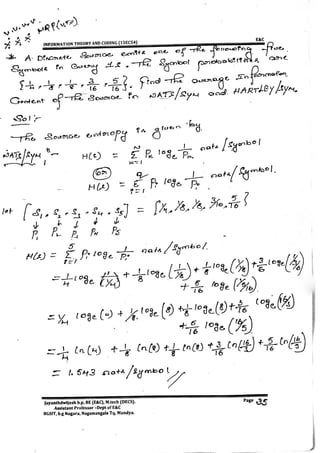 v.v.v.v. MRP (VTU)
INFORMATION THEORY AND CODING (15EC54) E&C
* A Discrete Source emits one of the following five
Symbols in every 1 S. The Symbol probabilities are
{1/4, 1/8, 1/8, 3/16, 5/16}. Find the average Information
Content of the Source in NATS/Sym and HARTLEY/Sym.
Sol:-
The Source entropy is given by
NATS/SYM H(z) = Σ Pk loge 1/Pk nats/Symbol
(or)
H(z) = Σ Pi loge 1/Pi nats/Symbol.
let [S1, S2, S3, S4, S5] = [1/4, 1/8, 1/8, 3/16, 5/16]
P1 P2 P3 P4 P5
H(z) = 5 Σ i=1 Pi loge 1/Pi nats/Symbol.
= 1/4 loge (1/(1/4)) + 1/8 loge (1/(1/8)) + 1/8 loge (1/(1/8)) + 3/16 loge (1/(3/16))
+ 5/16 loge (1/(5/16))
= 1/4 loge (4) + 1/8 loge (8) + 1/8 loge (8) + 3/16 loge (16/3)
+ 5/16 loge (16/5)
= 1/4 ln(4) + 1/8 ln(8) + 1/8 ln(8) + 3/16 ln(16/3) + 5/16 ln(16/5)
= 1.543 nats/symbol //
Jayanthdwijesh h.p, BE (E&C), M.tech (DECS). Page 35
Assistant Professor -Dept of E&C
BGSIT, b.g Nagara, Nagamangala Tq, Mandya.